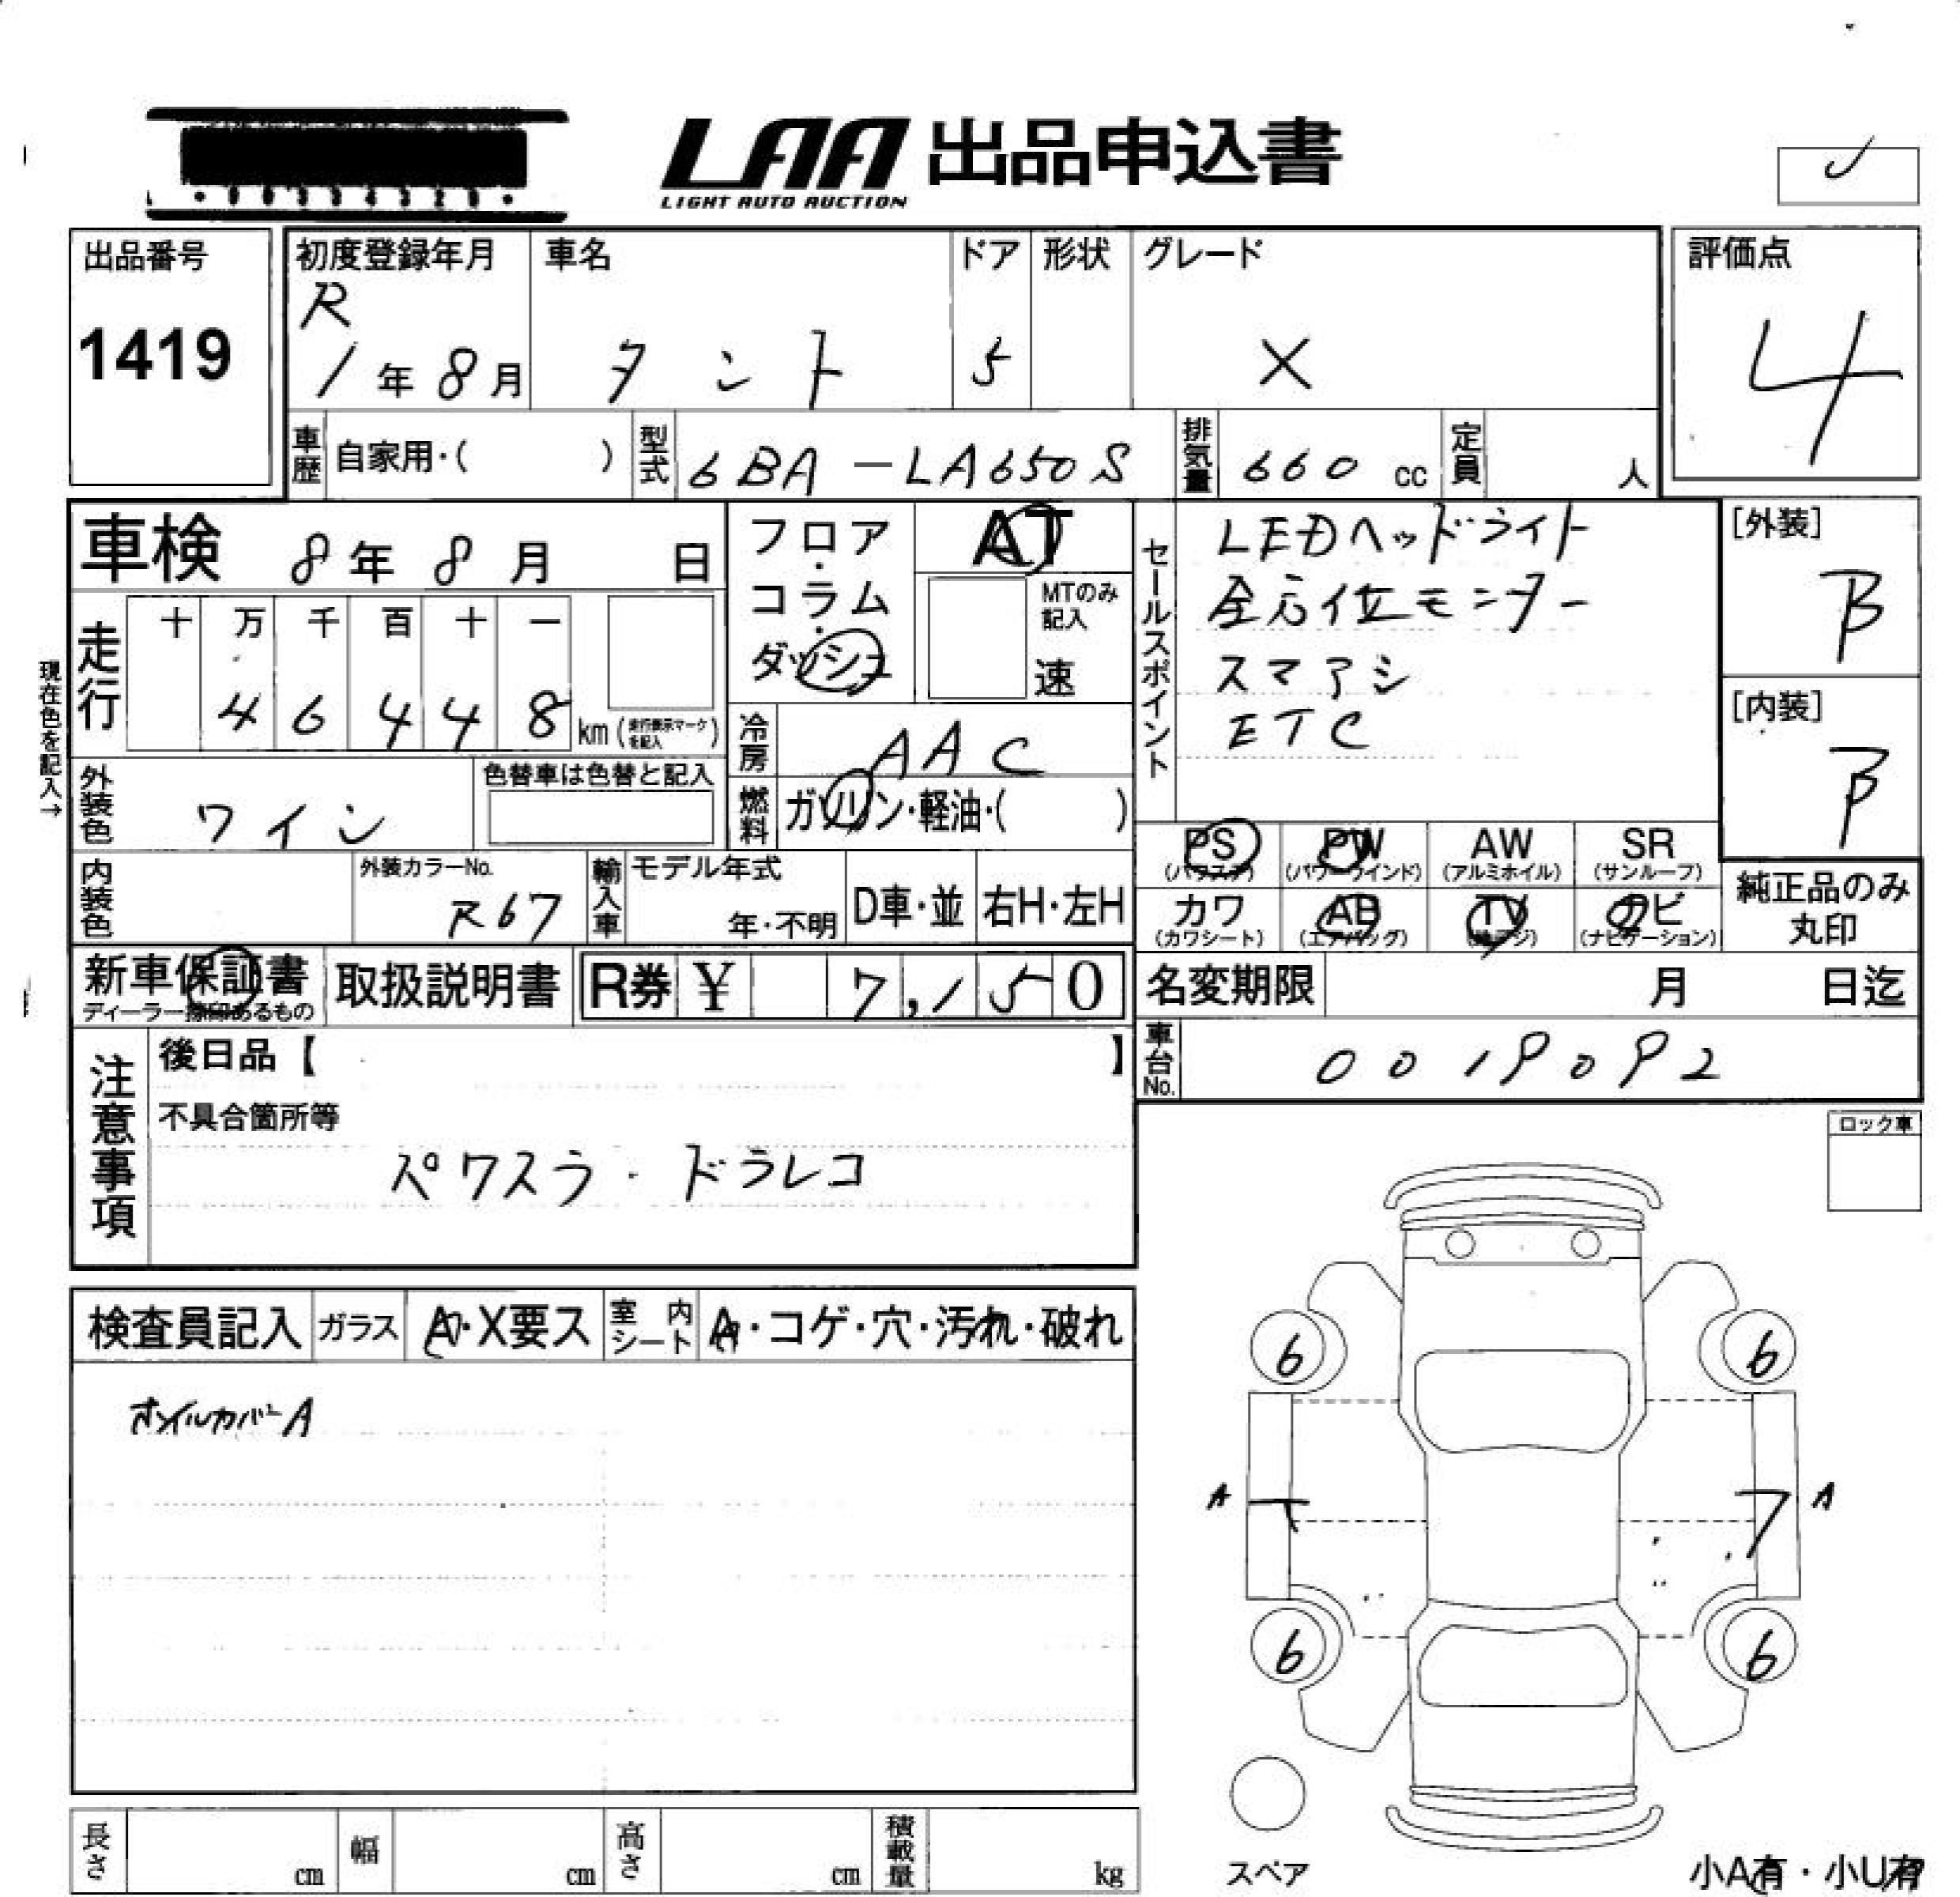 LAA 出品申込書
LIGHT AUTO AUCTION
出品番号
1419
初度登録年月
R
1年8月
車名
タント
ドア
5
形状
グレード
X
評価点
4
車歴 自家用・( )
型式 6BA-LA650S
排気量 660 cc
定員 人
車検 8年8月 日
現在色を記入→
走行
十 万 千 百 十 一
4 6 4 4 8 km(走行表示マークを記入)
フロア・コラム・ダッシュ
AT
MTのみ記入
速
冷房 AAC
燃料 ガソリン・軽油・( )
外装色 ワイン
色替車は色替と記入
内装色
外装カラーNo.
R67
輸入車
モデル年式
年・不明
D車・並
右H・左H
セールスポイント
LEDヘッドライト
全方位モニター
スマアシ
ETC
[外装]
B
[内装]
B
PS
(パワステ)
PW
(パワーウインド)
AW
(アルミホイル)
SR
(サンルーフ)
カワ
(カワシート)
AB
(エアバッグ)
TV
ナビ
(ナビゲーション)
純正品のみ
丸印
新車保証書
ディーラー捺印あるもの
取扱説明書
R券 ¥ 7,150
名変期限 月 日迄
車台No. 0019092
注意事項
後日品【 】
不具合箇所等
パワスラ・ドラレコ
ロック車
検査員記入
ガラス A・X要ス
室内シート A・コゲ・穴・汚れ・破れ
ホイルカバーA
6 6
A A
6 6
スペア
小A有・小U有
長さ cm
幅 cm
高さ cm
積載量 kg